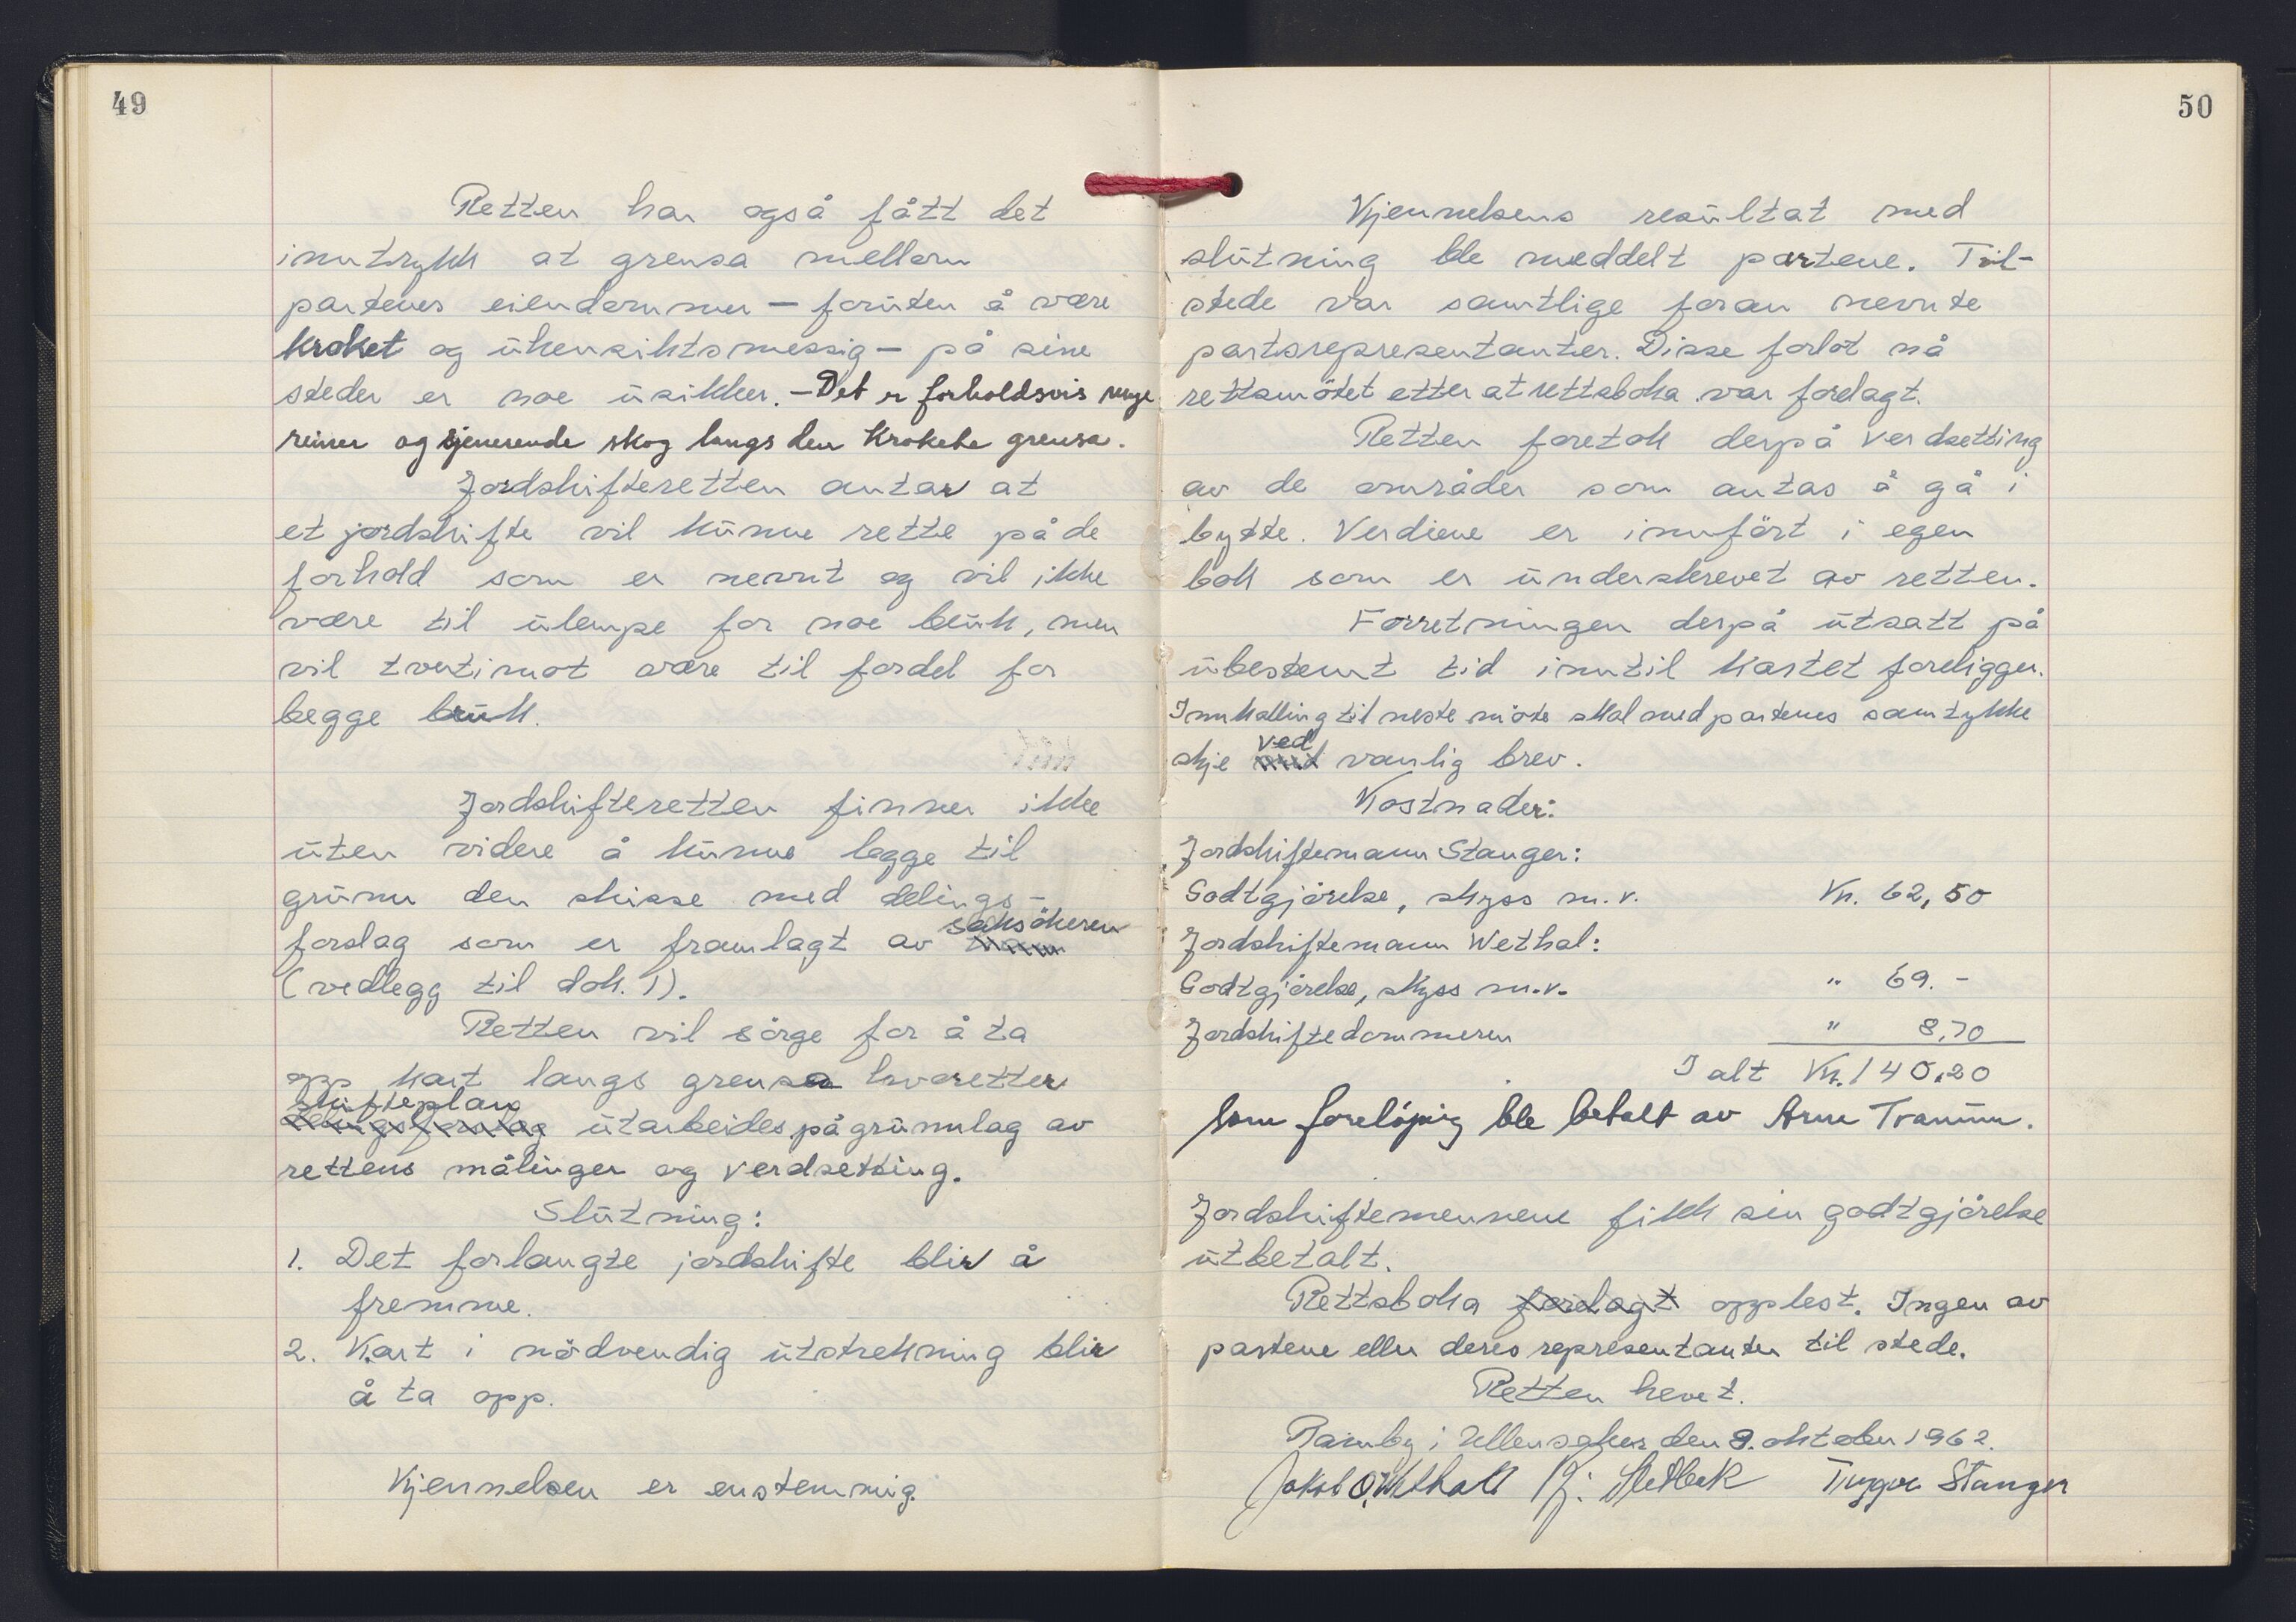 49
Retten har også fått det
inntrykk at grensa mellom
partenes eiendommer – foruten å være
kroket og uhensiktsmessig – på sine
steder er noe usikker. – Det er forholdsvis mye
reiner og sjenerende skog langs den krokete grensa.
Jordskifteretten antar at
et jordskifte vil kunne rette på de
forhold som er nevnt og vil ikke
være til ulempe for noe bruk, men
vil tvertimot være til fordel for
begge bruk.
Jordskifteretten finner ikke
uten videre å kunne legge til
grunn den skisse med delings-
forslag som er framlagt av saksökeren
(vedlegg til dok. 1).
Retten vil sörge for å ta
opp kart langs grensa hvoretter
skifteplan
delingsforslag utarbeides på grunnlag av
rettens målinger og verdsetting.
Slutning:
1. Det forlangte jordskifte blir å
fremme.
2. Kart i nödvendig utstrekning blir
å ta opp.
Kjennelsen er enstemmig.
50
Kjennelsens resultat med
slutning ble meddelt partene. Til-
stede var samtlige foran nevnte
partsrepresentanter. Disse forlot nå
rettsmötet etter at rettsboka var forelagt.
Retten foretok derpå verdsetting
av de områder som antas å gå i
bytte. Verdiene er innfört i egen
bok som er underskrevet av retten.
Forretningen derpå utsatt på
ubestemt tid inntil kartet foreligger.
Innkalling til neste möte skal med partenes samtykke
ved
skje med vanlig brev.
Kostnader:
Jordskiftemann Stanger:
Godtgjörelse, skyss m.v. Kr. 62,50
Jordskiftemann Wethal:
Godtgjörelse, skyss m.v. " 69.-
Jordskiftedommeren " 8,70
I alt Kr. 140,20
som forelöpig ble betalt av Arne Tranum.
Jordskiftemennene fikk sin godtgjörelse
utbetalt.
Rettsboka forelagt opplest. Ingen av
partene eller deres representanter til stede.
Retten hevet.
i Ullensaker den 9. oktober 1962.
Jakob O. Wethall Kj. Sletbak Trygve Stanger